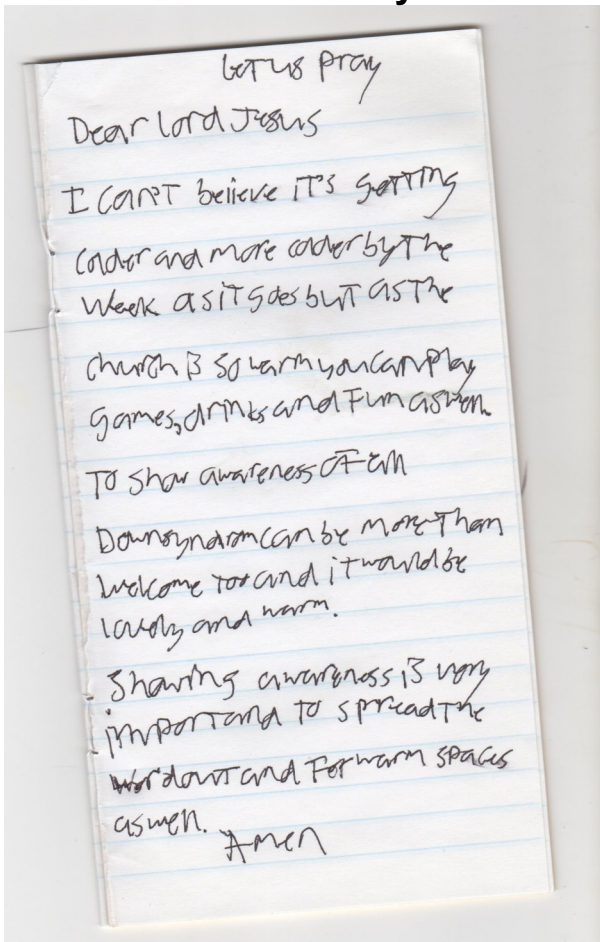 Let us pray
Dear lord Jesus
I can't believe it's getting
colder and more colder by the
week as it goes but as the
church is so warm you can play
games, drinks and Fun aswell.
To show awareness of all
Downsyndrom can be more Than
welcome too and it would be
lovely and warm.
Showing awareness is very
importand to spread the
word out and For warm spaces
aswell.
Amen